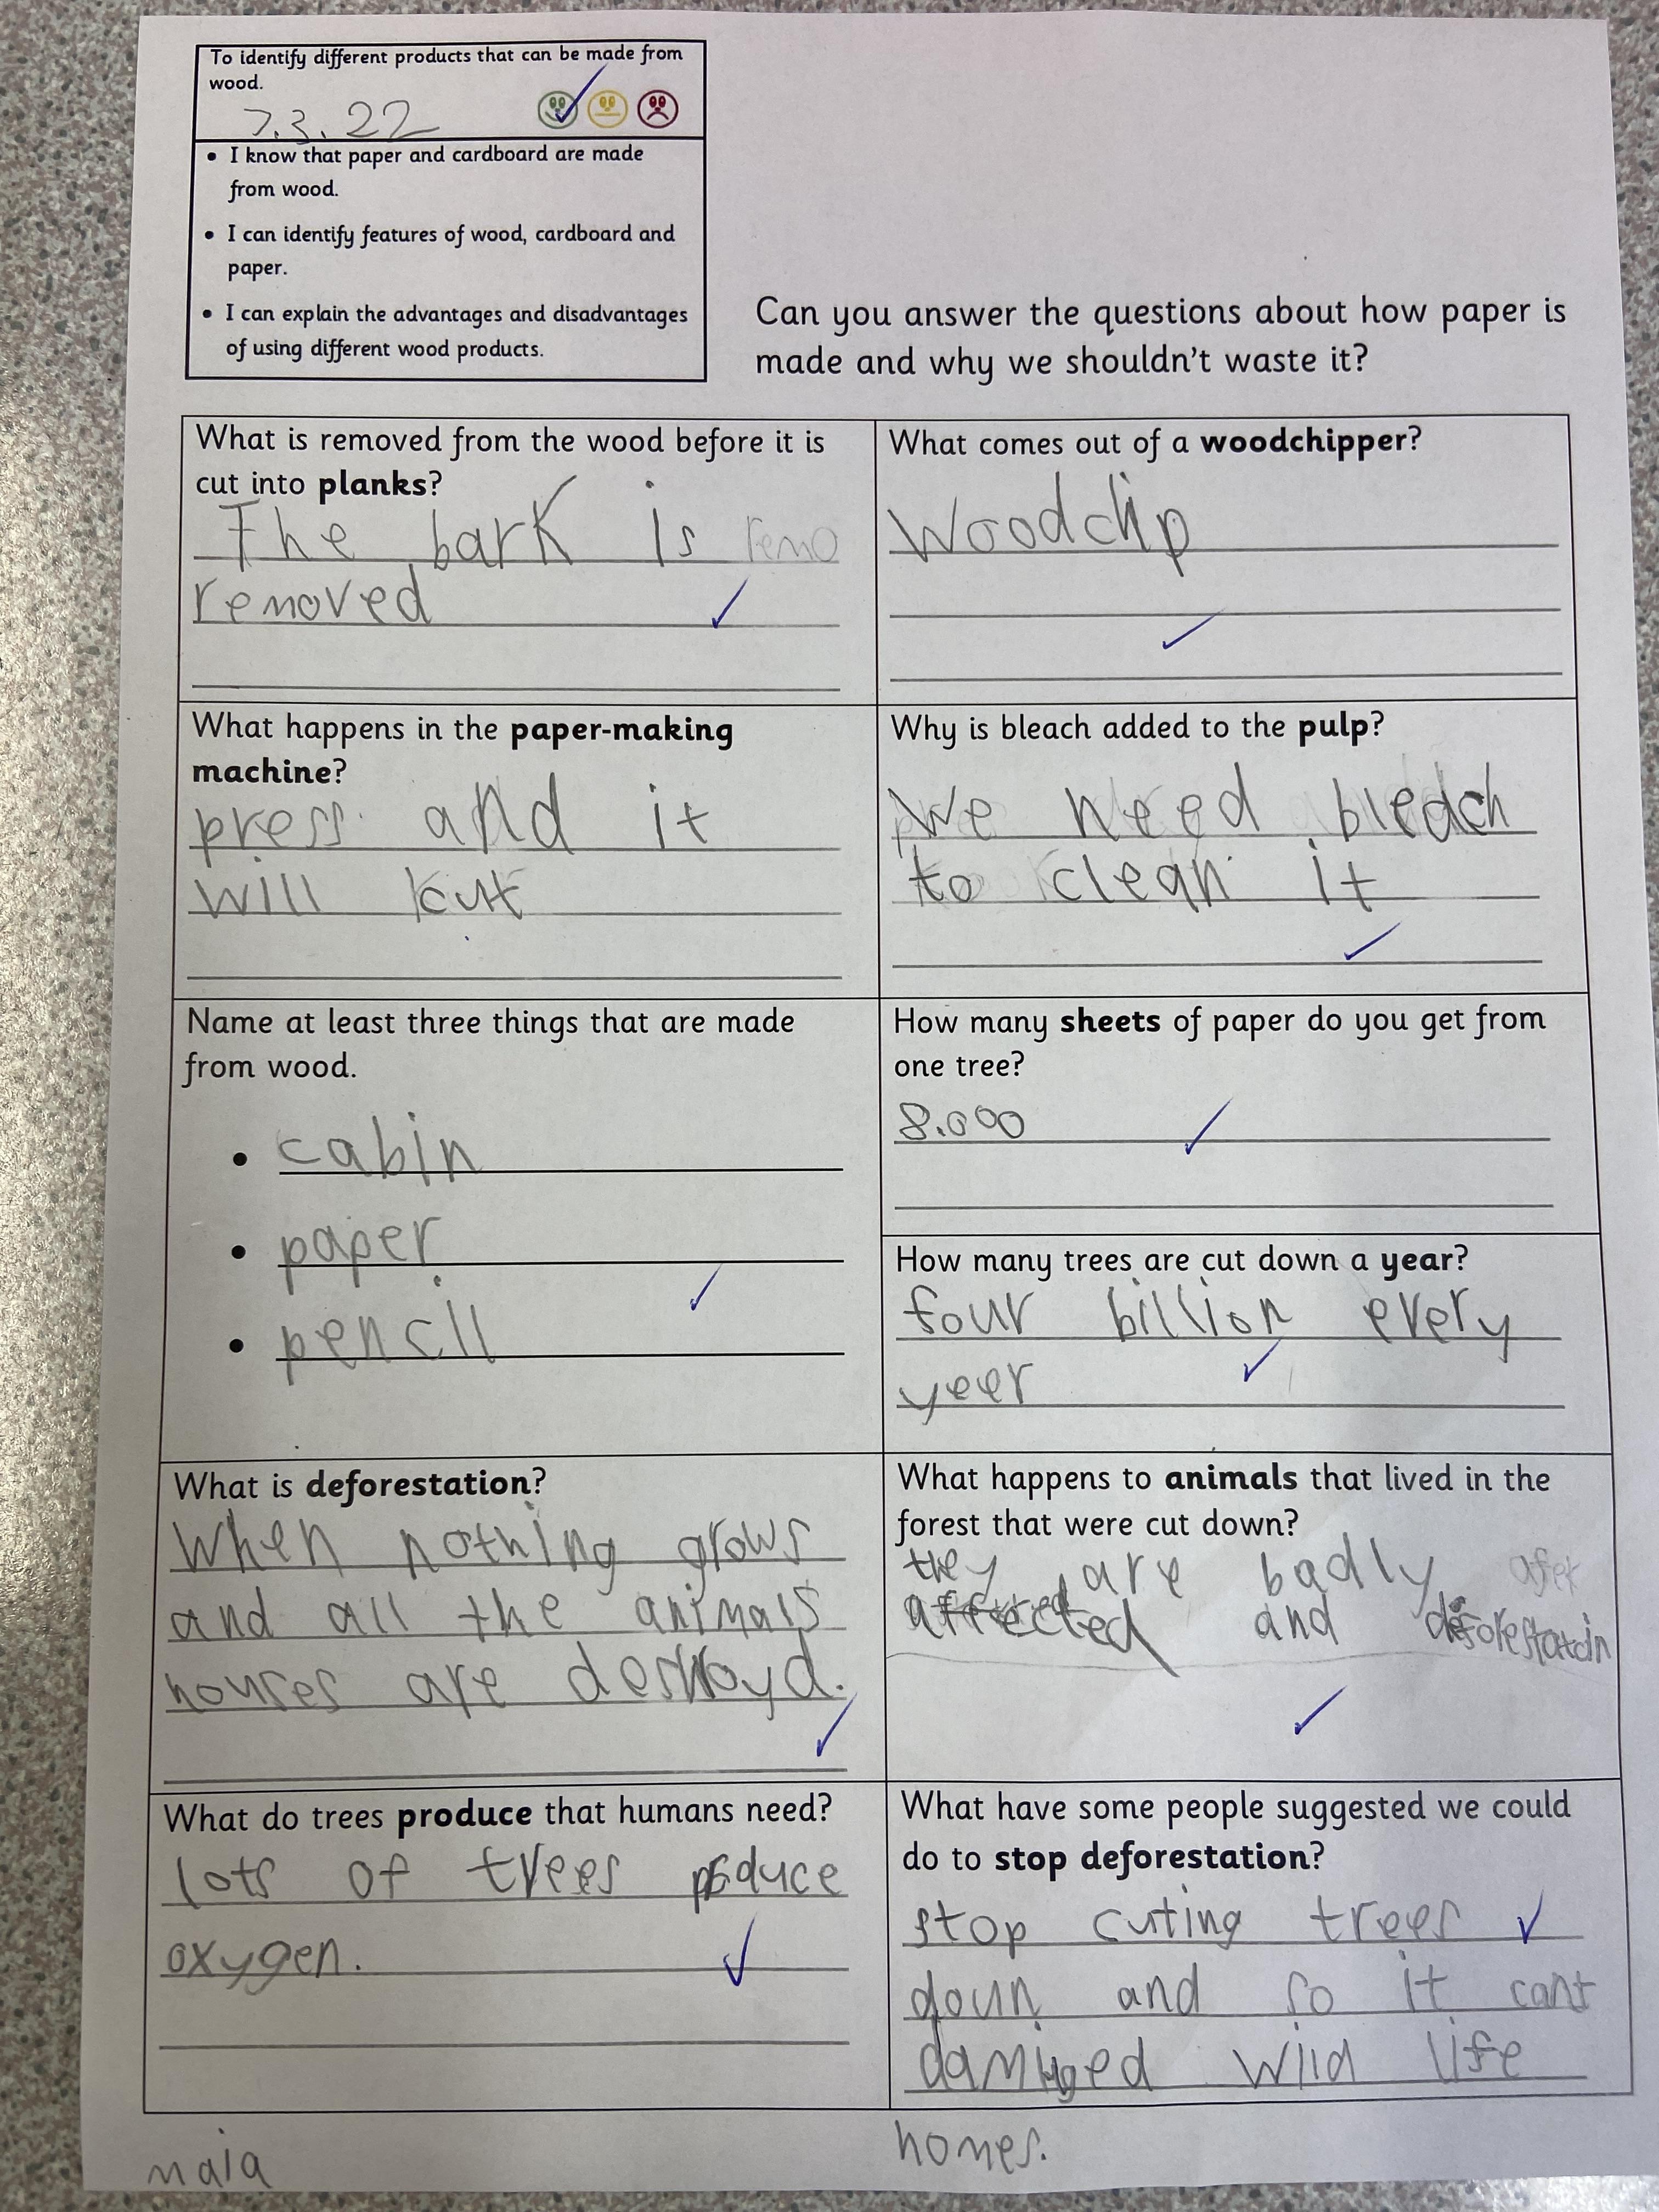 To identify different products that can be made from
wood.
7.3.22
• I know that paper and cardboard are made
from wood.
• I can identify features of wood, cardboard and
paper.
• I can explain the advantages and disadvantages
of using different wood products.
Can you answer the questions about how paper is
made and why we shouldn't waste it?
What is removed from the wood before it is
cut into planks?
The bark is remo
removed
What comes out of a woodchipper?
Woodchip
What happens in the paper-making
machine?
press and it
will cut
Why is bleach added to the pulp?
We need bleach
to clean it
Name at least three things that are made
from wood.
• cabin
• paper
• pencil
How many sheets of paper do you get from
one tree?
8.000
How many trees are cut down a year?
four billion every
yeer
What is deforestation?
When nothing grows
and all the animals
houses are destroyd.
What happens to animals that lived in the
forest that were cut down?
they are badly
affected and deforestatoin
What do trees produce that humans need?
lots of trees produce
oxygen.
What have some people suggested we could
do to stop deforestation?
stop cuting trees
doun and so it cant
damiged wild life
homes.
maia